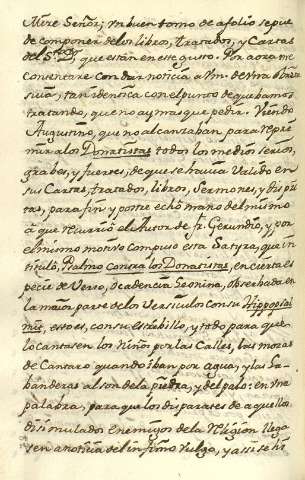 Mire Señor; un buen tomo de a folio se pue
de componer de los libros, tratados, y Cartas
del Sto. Dr. que están en este gusto. Por aora me
contentare con dar noticia a Vm. de una obra
suia, tan identica con el punto de que bamos
tratando, que no ay mas que pedir. Viendo
Augustino, que no alcanzaban para repri
mir a los Donatistas todos los medios serios,
grabes, y fuertes, de que se havia valido en
sus Cartas, tratados, libros, Sermones, y dispu
tas, para fin, y postre echó mano del mismo
a que recurrió el Autor de fr. Gerundio, y por
el mismo motivo compuso esta Satyra, que in
tituló, Psalmo contra los Donatistas, en cierta es
pecie de Verso, o cadencia Leonina, observada en
la maior parte de los Versiculos con su Hippopsal
mus, esto es, con su estrebillo, y todo para que
lo cantasen los Niños por las Calles, las mozas
de Cantaro quando iban por agua, y las La-
banderas al son de la piedra, y del palo: en una
palabra, para que los disparates de aquellos
disimulados enemigos de la Religion llega
sen a noticia del infimo Vulgo, y assi se hi